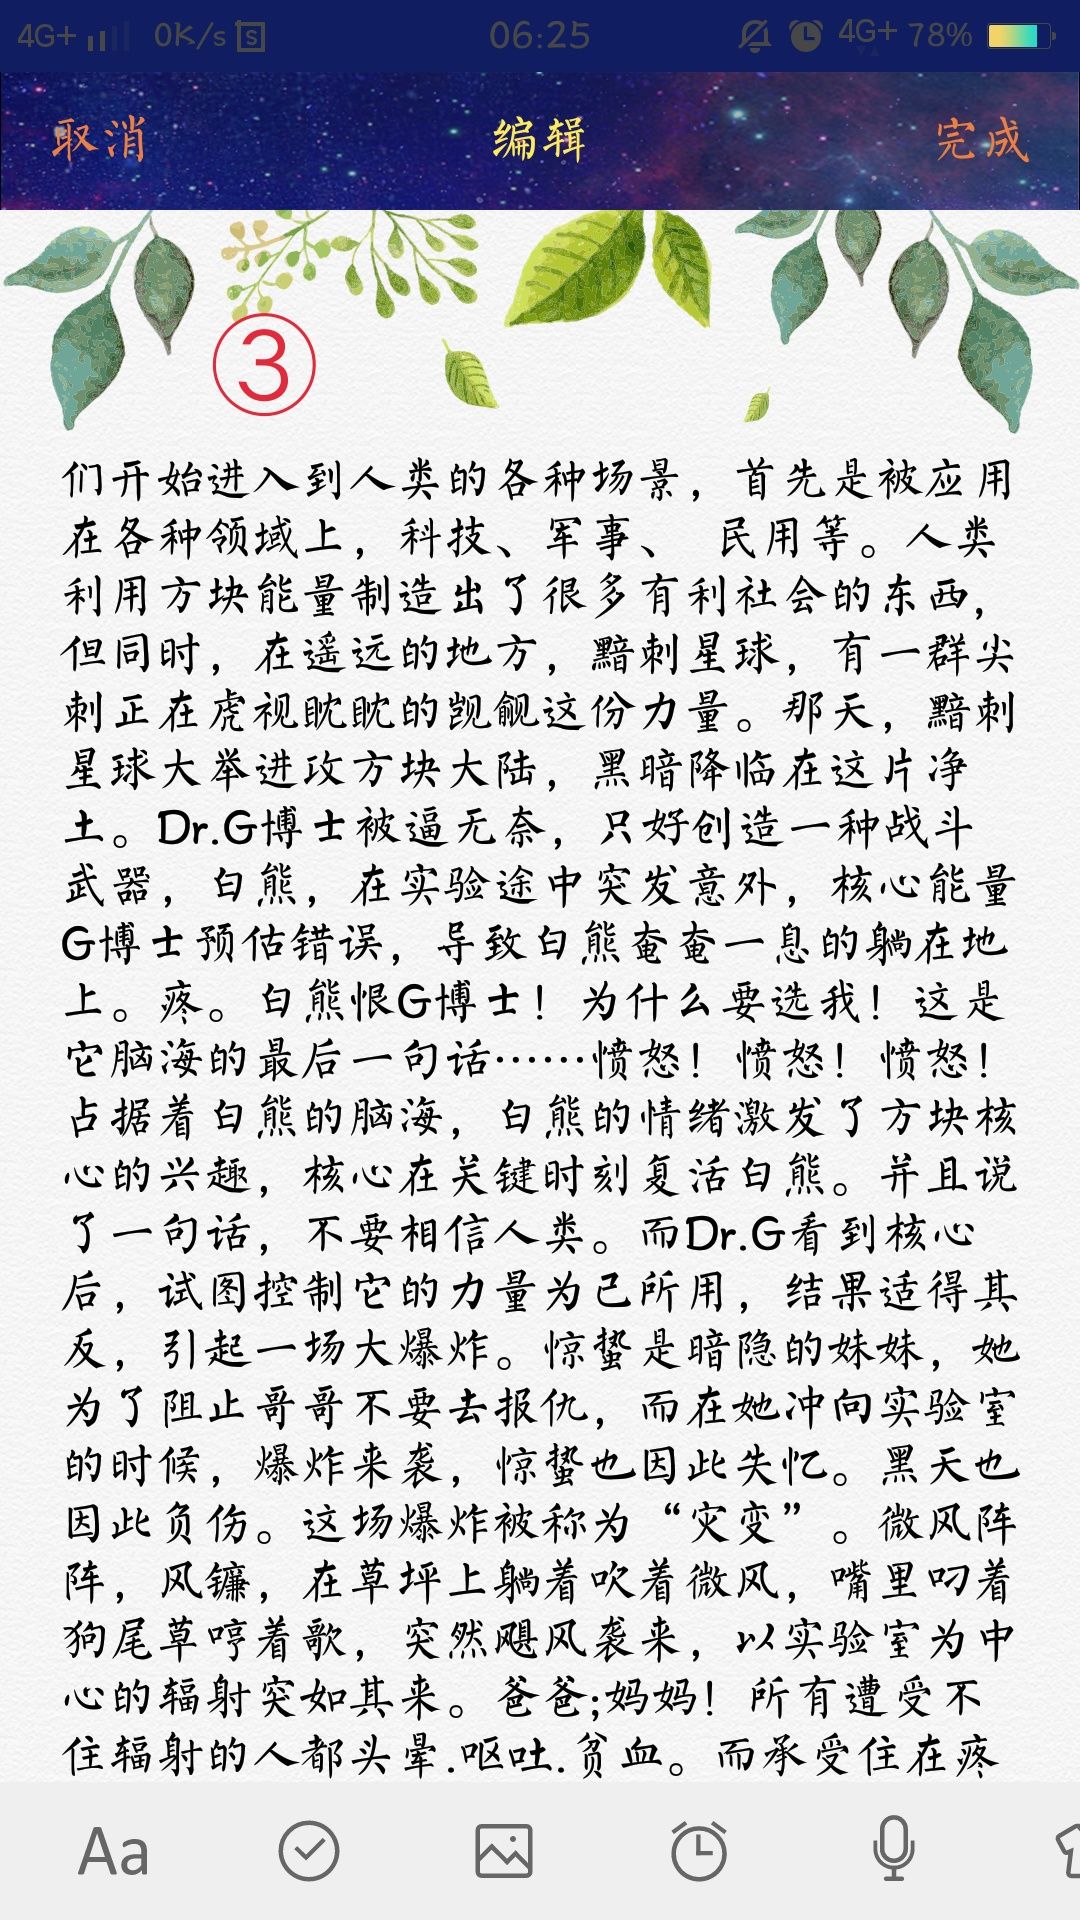 4G+ 0K/s S 06:25 4G+ 78%
取消 编辑 完成
③
们开始进入到人类的各种场景，首先是被应用
在各种领域上，科技、军事、 民用等。人类
利用方块能量制造出了很多有利社会的东西，
但同时，在遥远的地方，黯刺星球，有一群尖
刺正在虎视眈眈的觊觎这份力量。那天，黯刺
星球大举进攻方块大陆，黑暗降临在这片净
土。Dr.G博士被逼无奈，只好创造一种战斗
武器，白熊，在实验途中突发意外，核心能量
G博士预估错误，导致白熊奄奄一息的躺在地
上。疼。白熊恨G博士！为什么要选我！这是
它脑海的最后一句话……愤怒！愤怒！愤怒！
占据着白熊的脑海，白熊的情绪激发了方块核
心的兴趣，核心在关键时刻复活白熊。并且说
了一句话，不要相信人类。而Dr.G看到核心
后，试图控制它的力量为已所用，结果适得其
反，引起一场大爆炸。惊蛰是暗隐的妹妹，她
为了阻止哥哥不要去报仇，而在她冲向实验室
的时候，爆炸来袭，惊蛰也因此失忆。黑天也
因此负伤。这场爆炸被称为“灾变”。微风阵
阵，风镰，在草坪上躺着吹着微风，嘴里叼着
狗尾草哼着歌，突然飓风袭来，以实验室为中
心的辐射突如其来。爸爸;妈妈！所有遭受不
住辐射的人都头晕.呕吐.贫血。而承受住在疼
Aa